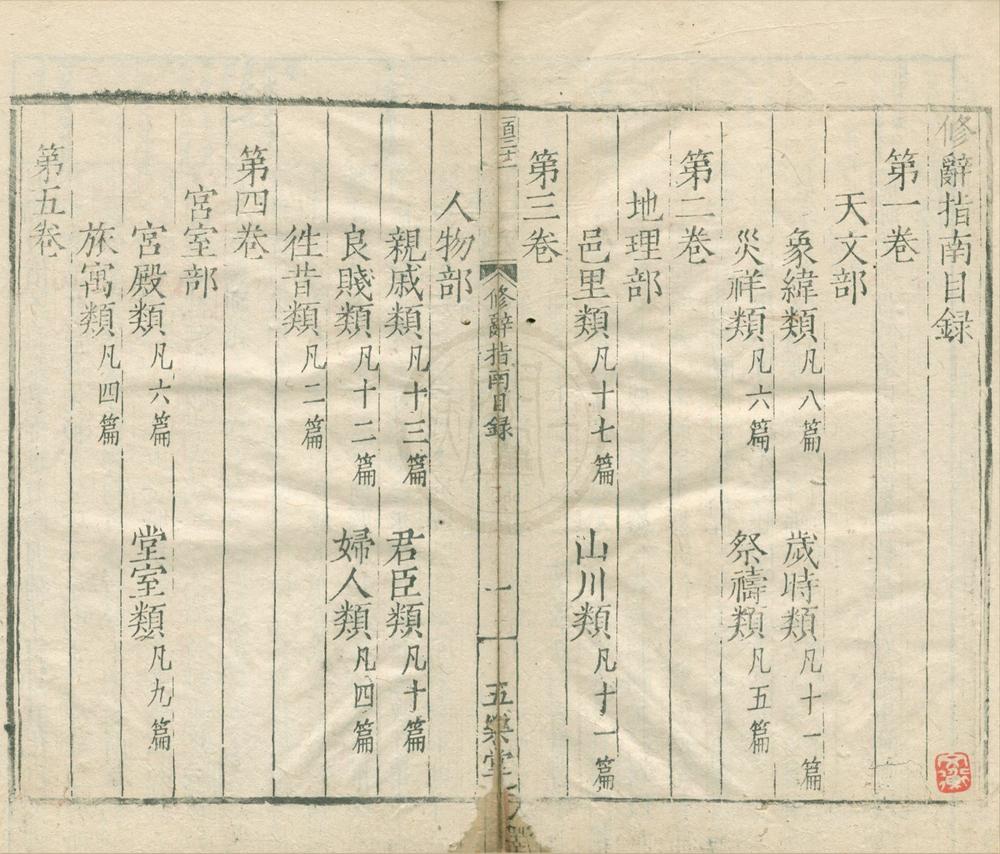 修辭指南目録
第一卷
天文部
象緯類凡八篇　歲時類凡十一篇
災祥類凡六篇　祭禱類凡五篇
第二卷
地理部
邑里類凡十七篇　山川類凡十一篇
第三卷
修辭指南目録　一　五樂堂
人物部
親戚類凡十三篇　君臣類凡十篇
良賤類凡十二篇　婦人類凡四篇
徃昔類凡二篇
第四卷
宮室部
宮殿類凡六篇　堂室類凡九篇
旅寓類凡四篇
第五卷